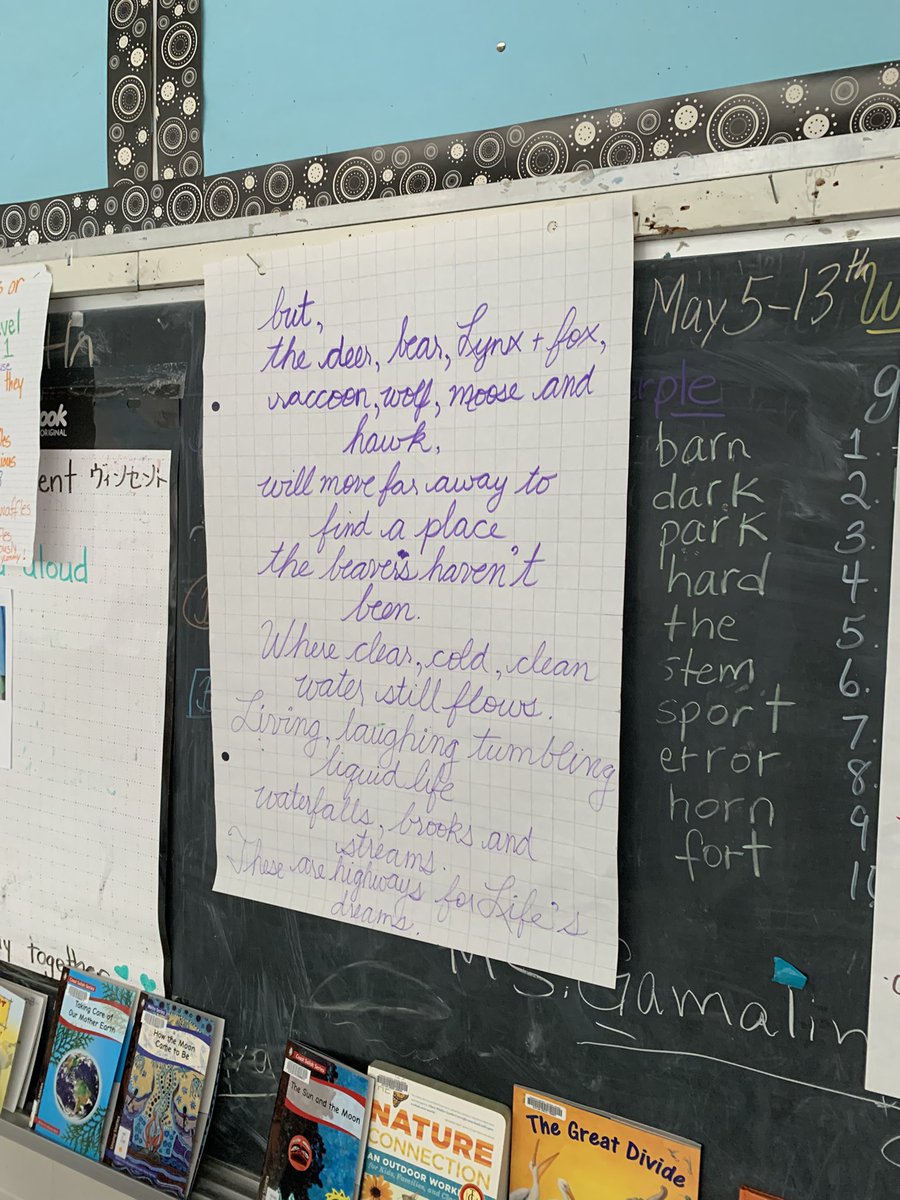 but,
the deer, bear, Lynx + fox,
raccoon, wolf, moose and
hawk,
will move far away to
find a place
the beavers haven't
been.
Where clear, cold, clean
water still flows.
Living, laughing tumbling
liquid life
waterfalls, brooks and
streams.
These are highways for Life's
dreams.
or
vel
1
they
ook
ORIGINAL
ent ヴィンセント
loud
y together
May 5-13th W
ple
barn
dark
park
hard
the
stem
sport
error
horn
fort
g
1.
2.
3.
4.
5.
6.
7.
8.
9
Ms. Gamalin
Taking Care of
Our Mother Earth
How the Moon
Came to Be
Coast Salish Series
The Sun and the Moon
THE
NATURE
CONNECTION
AN OUTDOOR WORK
for Kids, Families, and Cl
The Great Divide